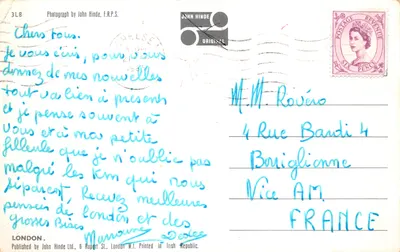 3LB
Photograph by John Hinde, F.R.P.S.
JOHN HINDE
ORIGINAL
POSTAGE REVENUE
Chers tous.
Je vous écris, pour vous
donnez de mes nouvelles
tout va bien à présents
et je pense souvent à
vous et à ma petite
filleule que je n'oublie pas
malgré les Km qui nous
séparent, Recevez meilleures
pensées de London et des
grosses Bises
Marraine
M. M. Rovéro
4 Rue Bardi 4
Nice AM.
FRANCE
LONDON.
Published by John Hinde Ltd., 6 Rupert St., London W.1. Printed in Irish Republic.